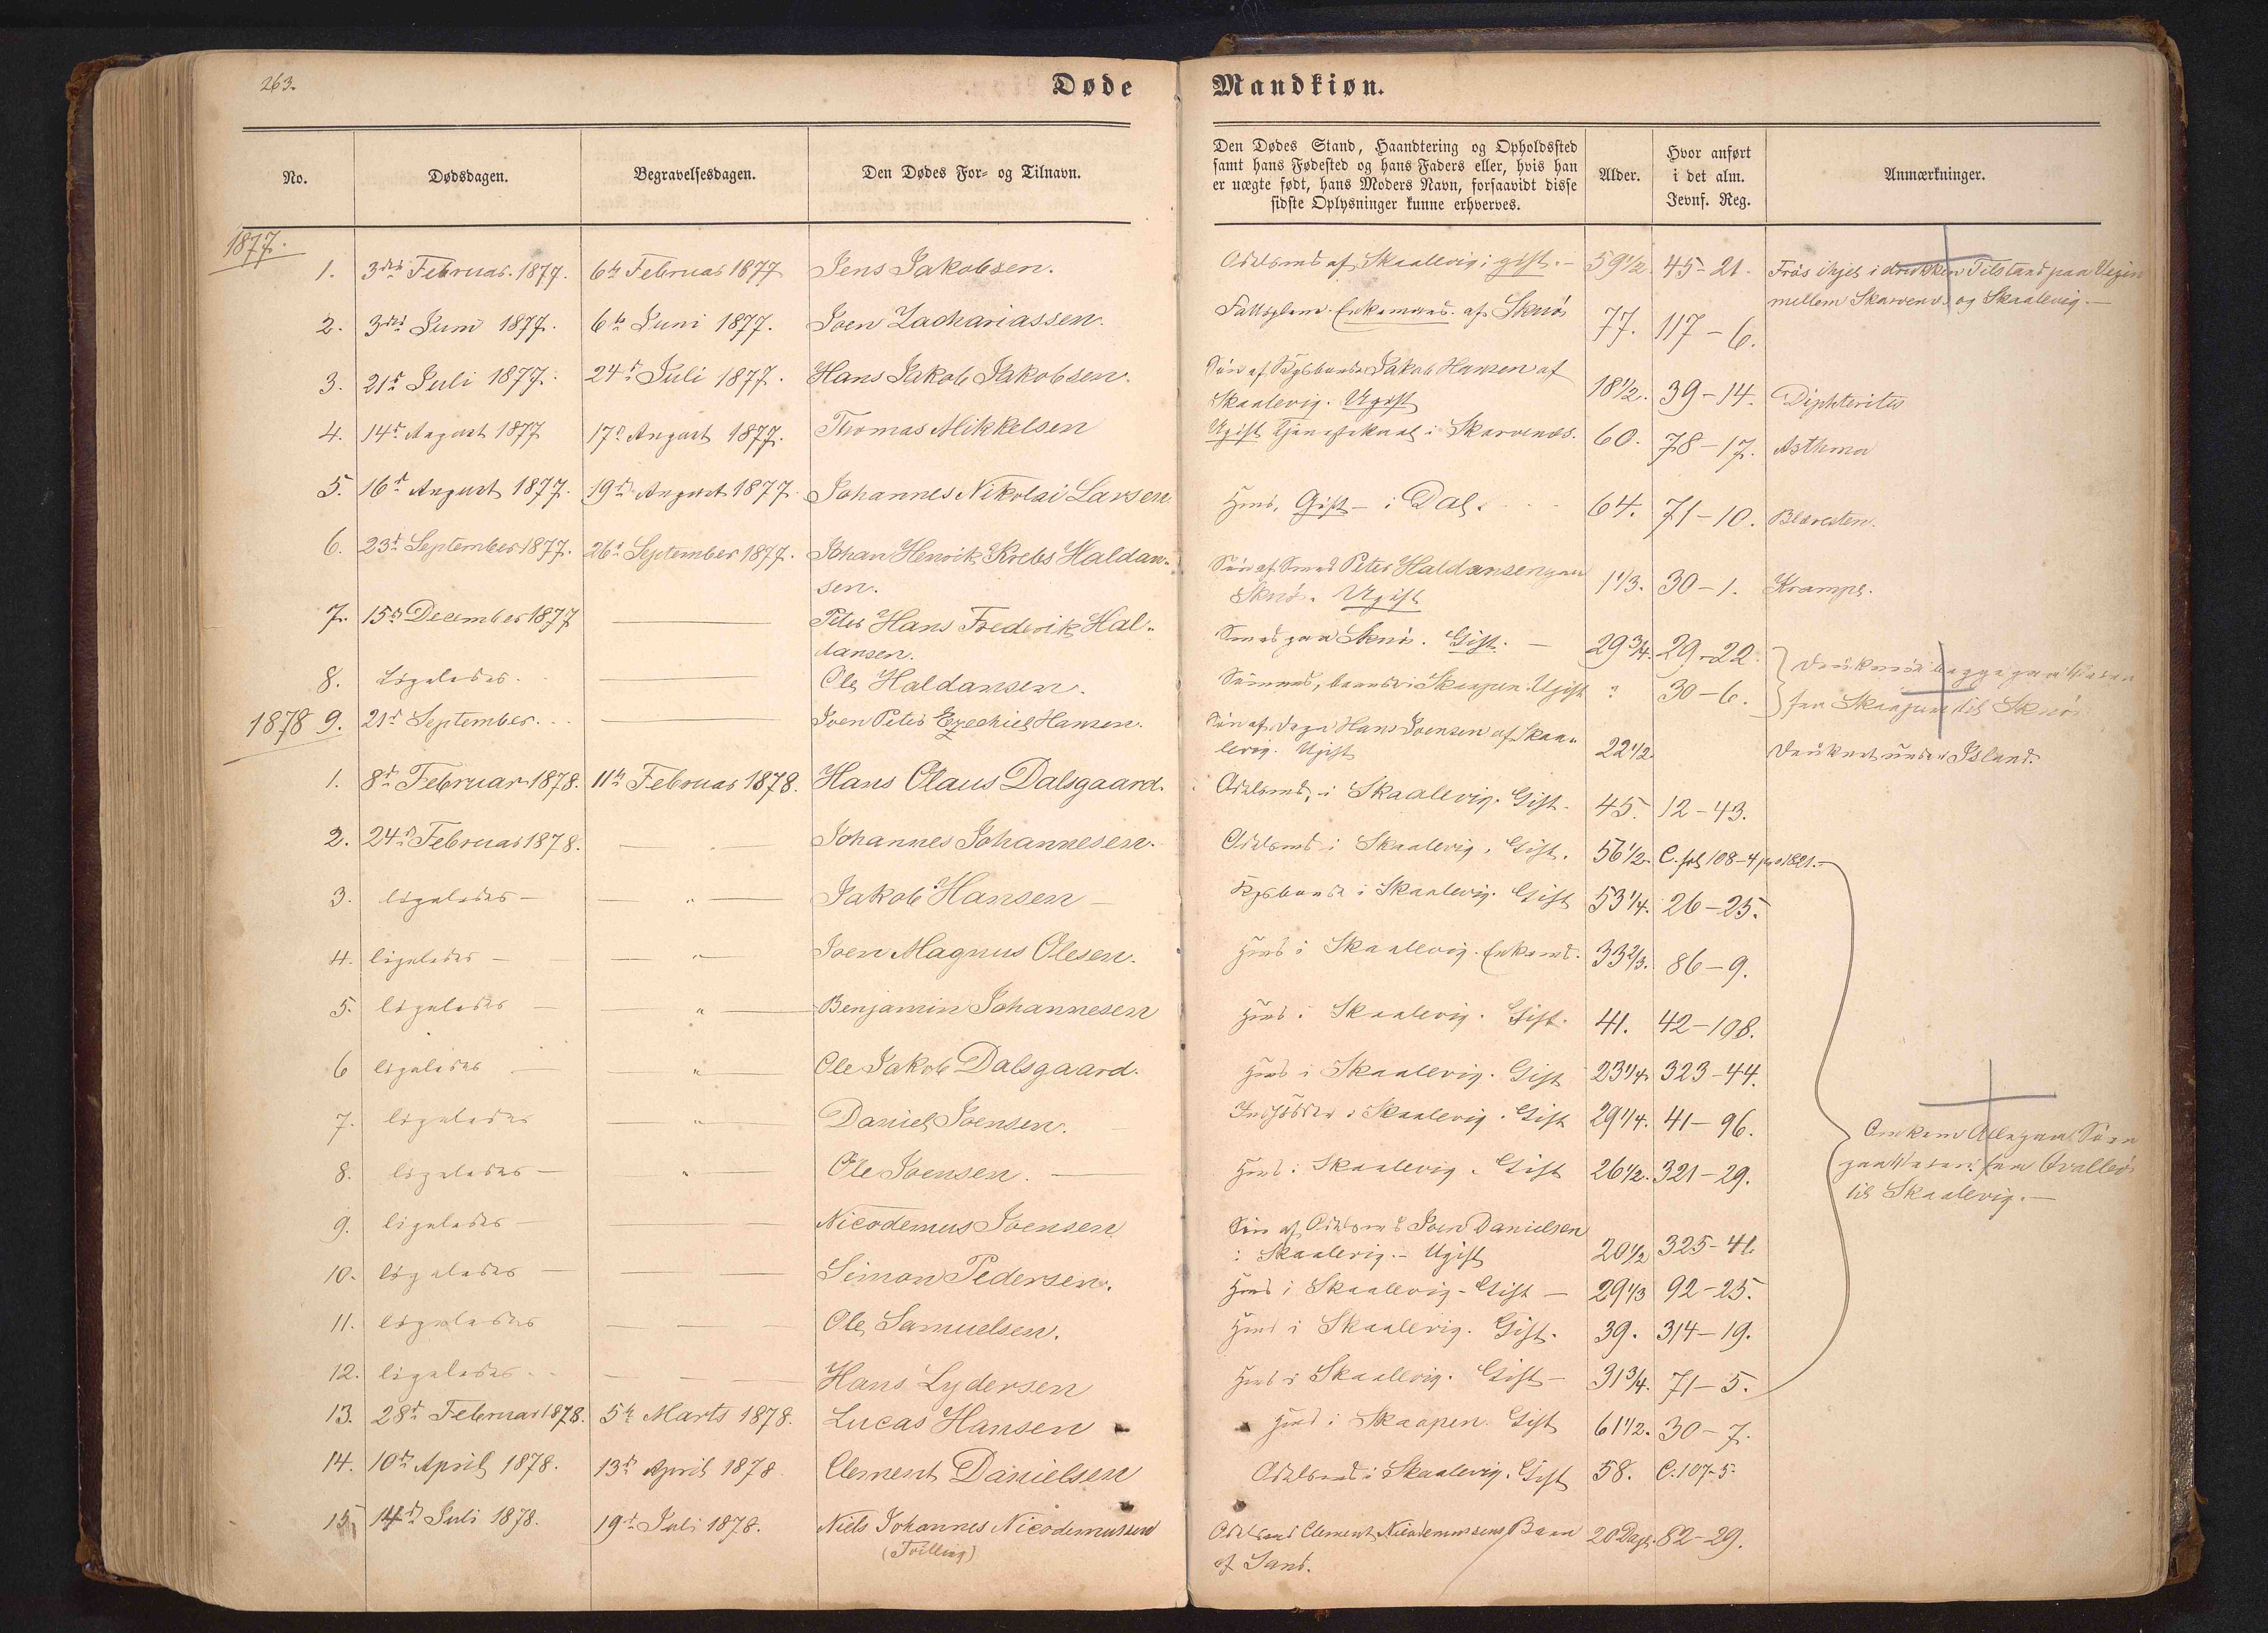 263.
Døde Mandkiøn.
No.
Dødsdagen.
Begravelsesdagen.
Den Dødes For- og Tilnavn.
Den Dødes Stand, Haandtering og Opholdssted
samt hans Fødested og hans Faders eller, hvis han
er uægte født, hans Moders Navn, forsaavidt disse
sidste Oplysninger kunne erhverves.
Alder.
Hvor anført
i det alm.
Jevnf. Reg.
Anmærkninger.
1877.
1. 3die Februar 1877. 6te Februar 1877 Jens Jakobsen. Odelsmd af Skaalevig; gift. – 59 1/2. 45-21. Frøs ihjel i drukken Tilstand paa Vejen
mellem Skarvenes og Skaalevig. –
2. 3die Juni 1877. 6te Juni 1877. Joen Zachariassen. Fattiglem. Enkemand. af Skuø 77. 117-6.
3. 21de Juli 1877. 24de Juli 1877. Hans Jakob Jakobsen. Søn af Kgsbonde Jakob Hansen af
Skaalevig. Ugift 18 1/2. 39-14. Diphteritis
4. 14de August 1877 17de August 1877. Thomas Mikkelsen Ugift Tjenestekarl i Skarvenæs. 60. 78-17. Asthma
5. 16de August 1877. 19de August 1877. Johannes Nikolai Larsen Hmd, Gift – i Dal. 64. 71-10. Blæresten.
6. 23de September 1877. 26de September 1877. Johan Henrik Krebs Haldan-
sen. Søn af Smed Peter Haldansen paa
Skuø. Ugift 1 1/3. 30-1. Krampe.
7. 15de December 1877 — Peter Hans Frederik Hal-
dansen. Smed paa Skuø. Gift. – 29 3/4. 29-22. Druknede begge paa Rejsen
8. Ligeledes. — Ole Haldansen. Sømand, boende i Skaapen. Ugift 30-6. fra Skaapen til Skuø
9. 21de September. — Joen Peter Ezechiel Hansen. Søn af Hans Joensen af Skaa-
levig. Ugift 22 1/2. Druknet under Island.
1878
1. 8de Februar 1878. 11te Februar 1878. Hans Olaus Dalsgaard. Odelsmd, i Skaalevig. Gift. 45. 12-43.
2. 24de Februar 1878. — Johannes Johannesen. Odelsmd i Skaalevig. Gift. 56 1/2. C. fol 108-4 pro 1821. –
3. ligeledes – — " — Jakob Hansen – Kgsbonde i Skaalevig. Gift 53 1/4. 26-25.
4. ligeledes – — " — Joen Magnus Olesen. Hmd i Skaalevig. Enkemd. 33 2/3. 86-9.
5. ligeledes – — " — Benjamin Johannesen Hmd i Skaalevig. Gift. 41. 42-108.
6 ligeledes – — " — Ole Jakob Dalsgaard. Hmd i Skaalevig. Gift 23 1/4. 323-44.
7. ligeledes — " — Daniel Joensen. Indsidder i Skaalevig. Gift 29 1/4. 41-96. Omkom Alle paa Søen
8. ligeledes – — " — Ole Joensen. — Hmd i Skaalevig. Gift 26 1/2. 321-29. paa Rejsen fra Qvalbø
til Skaalevig. –
9. ligeledes – — Nicodemus Joensen Søn af Odelsmd Joen Danielsen
i Skaalevig. – Ugift 20 1/2 325-41.
10. ligeledes – — Simon Pedersen. Hmd i Skaalevig – Gift – 29 1/3 92-25.
11. ligeledes — Ole Samuelsen. Hmd i Skaalevig. Gift. 39. 314-19.
12. ligeledes. — Hans Lydersen Hmd i Skaalevig. Gift – 31 3/4. 71-5.
13. 28de Februar 1878. 5te Marts 1878. Lucas Hansen Hmd i Skaapen Gift 61 1/2. 30-7.
14. 10de April 1878. 13de April 1878 Clement Danielsen Odelsmd i Skaalevig. Gift 58. C. 107-5.
15. 14de Juli 1878. 19de Juli 1878. Niels Johannes Nicodemussen
(Tvilling) Odelsmd Clement Nicodemussens Barn
af Sand. 20 Dage. 82-29.